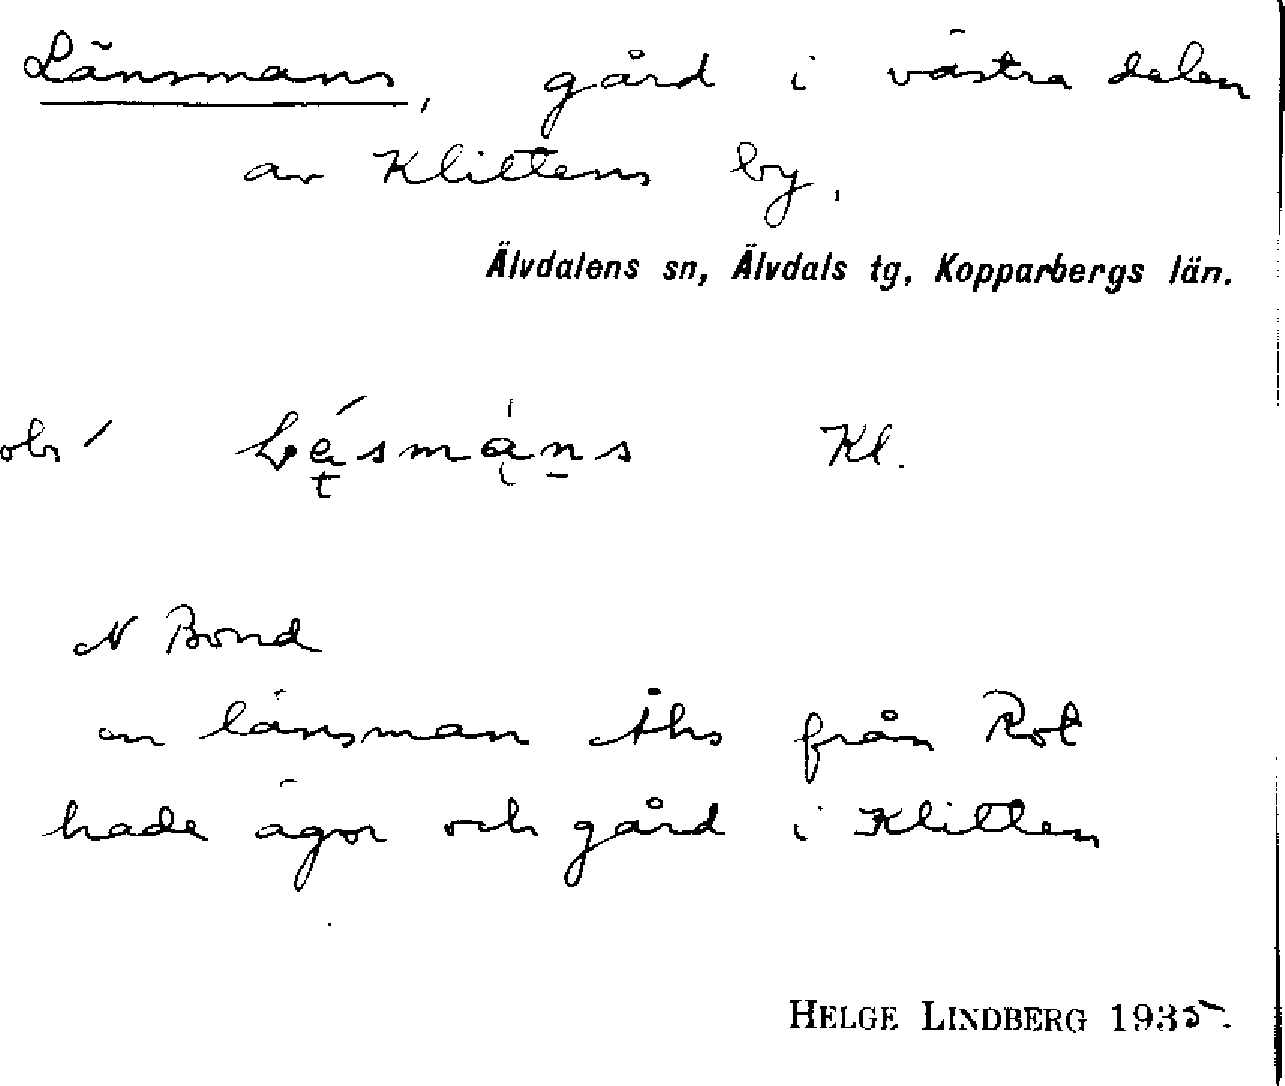 Länsmans, gård i västra delen
av Klittens by,
Älvdalens sn, Älvdals tg, Kopparbergs län.
Kl.
N Bond
en länsman Åhs från Rot
hade ägor och gård i Klitten
HELGE LINDBERG 1935.